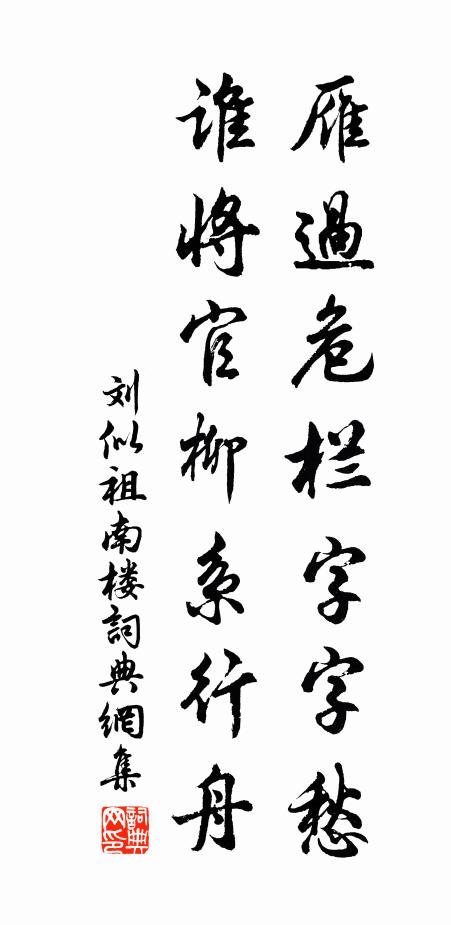 雁過危栏字字愁
誰將官柳系行舟
刘似祖南楼詞典網集
詞典网印